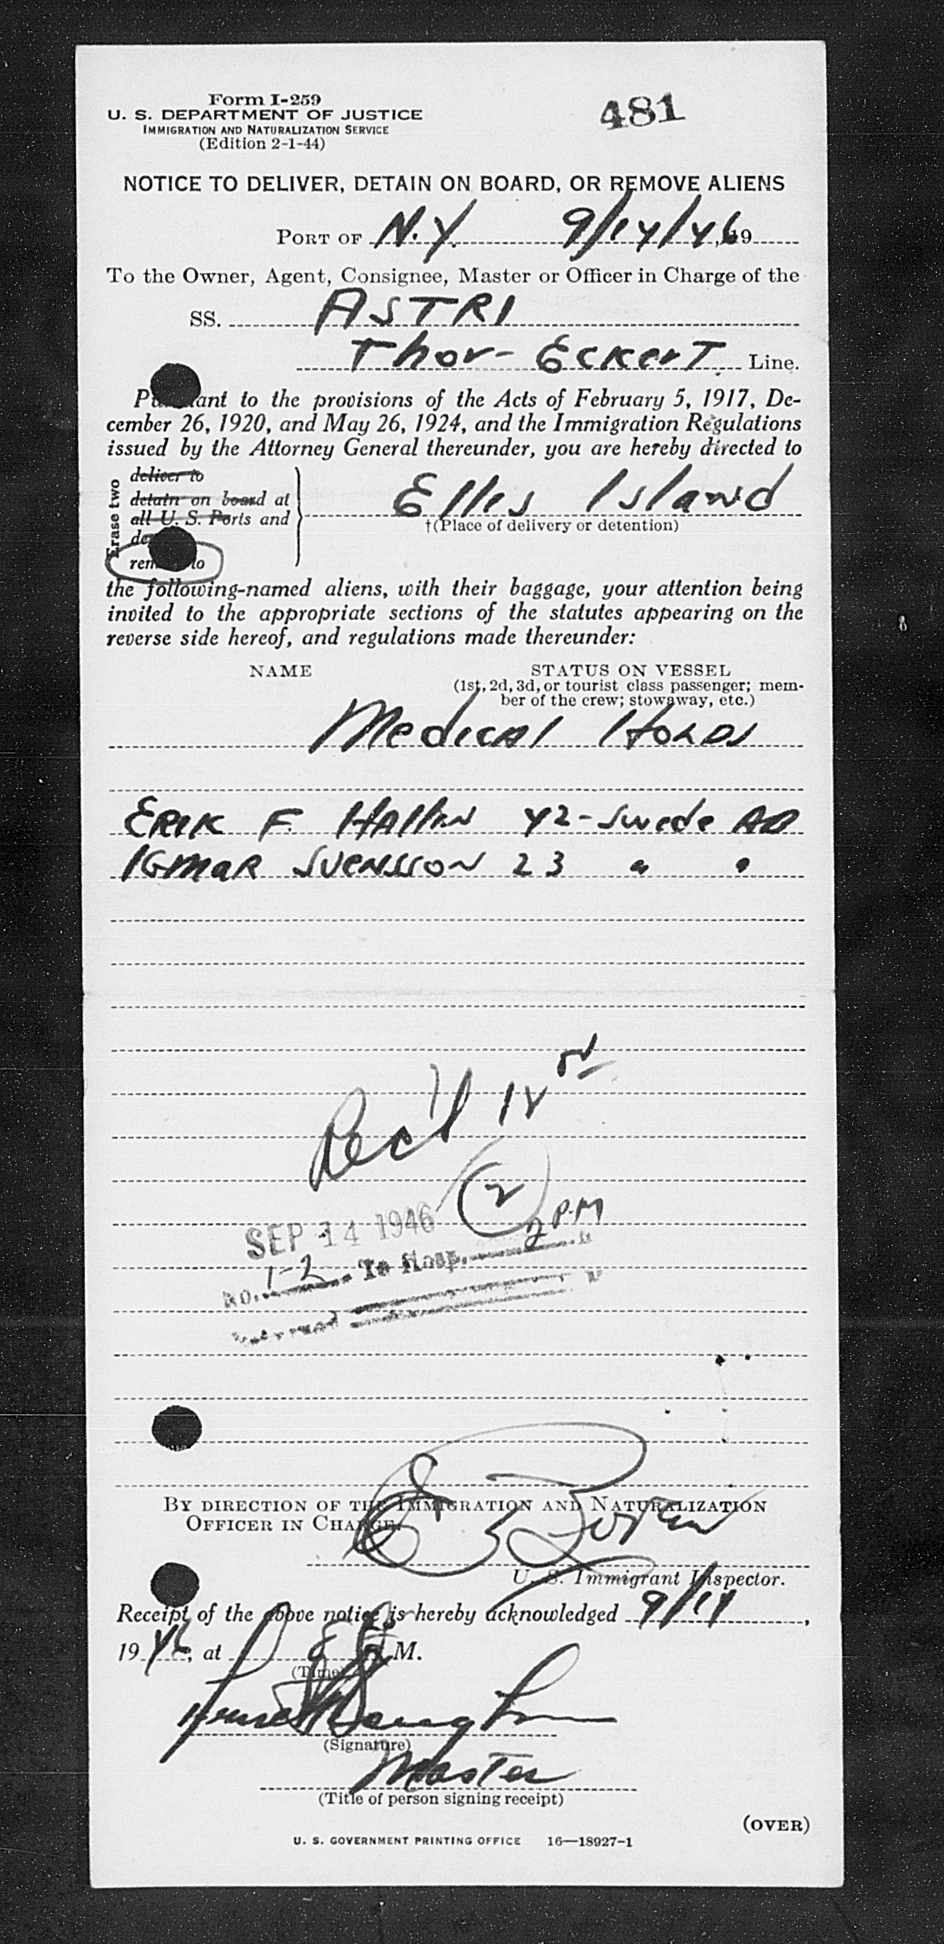 Form I-259
481
U. S. DEPARTMENT OF JUSTICE
IMMIGRATION AND NATURALIZATION SERVICE
(Edition 2-1-44)
NOTICE TO DELIVER, DETAIN ON BOARD, OR REMOVE ALIENS
PORT OF N.Y. 9/14/46, 19
To the Owner, Agent, Consignee, Master or Officer in Charge of the
SS. ASTRI
Thor-Eckert Line.
Pursuant to the provisions of the Acts of February 5, 1917, De-
cember 26, 1920, and May 26, 1924, and the Immigration Regulations
issued by the Attorney General thereunder, you are hereby directed to
Erase two
deliver to
detain on board at
all U. S. Ports and
remove to
Ellis Island
†(Place of delivery or detention)
the following-named aliens, with their baggage, your attention being
invited to the appropriate sections of the statutes appearing on the
reverse side hereof, and regulations made thereunder:
NAME STATUS ON VESSEL
(1st, 2d, 3d, or tourist class passenger; mem-
ber of the crew; stowaway, etc.)
Medical Holds
ERIK F. HAllin 42-Swede AD
IGMAR SVENSSON 23 " "
Rec'd 12
2
SEP 14 1946
2 PM
No. 1-2 To Hosp.
BY DIRECTION OF THE IMMIGRATION AND NATURALIZATION
OFFICER IN CHARGE.
U. S. Immigrant Inspector.
Receipt of the above notice is hereby acknowledged 9/14,
19 46, at M.
(Time)
(Signature)
Master
(Title of person signing receipt)
(OVER)
U. S. GOVERNMENT PRINTING OFFICE 16—18927-1